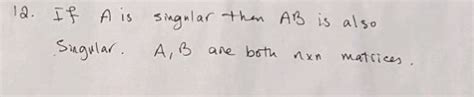 12. If A is singular then AB is also
Singular. A, B are both nxn matrices.